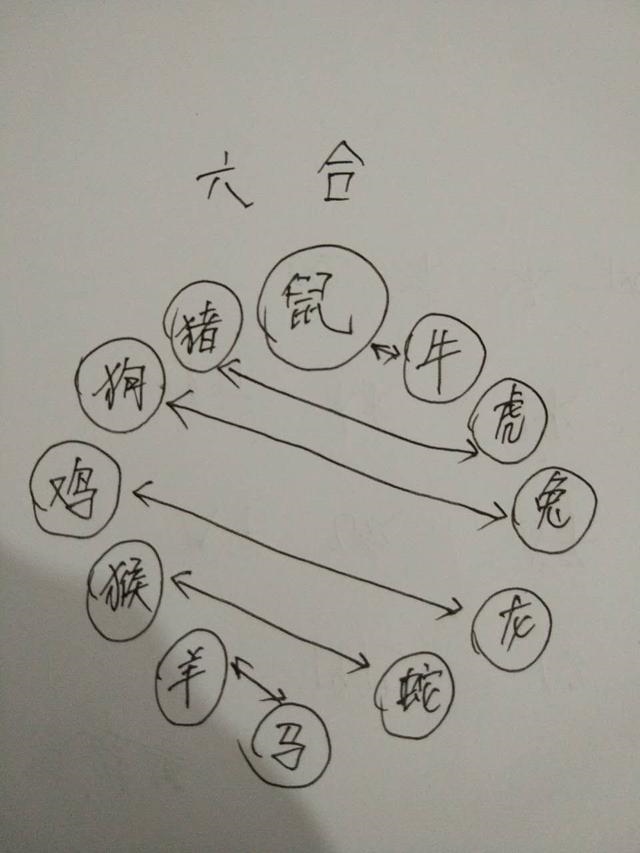 六 合
鼠
猪
牛
狗
虎
鸡
兔
猴
龙
羊
蛇
马